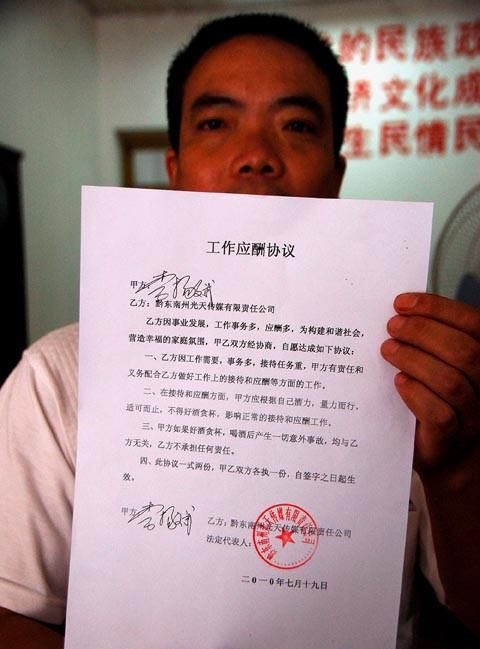 的民族政
济文化成
生民情民
工作应酬协议
甲方:
乙方:黔东南州光天传媒有限责任公司
乙方因事业发展,工作事务多,应酬多,为构建和谐社会,
营造幸福的家庭氛围,甲乙双方经协商,自愿达成如下协议:
一、乙方因工作需要,事务多,接待任务重,甲方有责任和
义务配合乙方做好工作上的接待和应酬等方面的工作。
二、在接待和应酬方面,甲方应根据自己酒力,量力而行,
适可而止,不得好酒贪杯,影响正常的接待和应酬工作。
三、甲方如果好酒贪杯,喝酒后产生一切意外事故,均与乙
方无关,乙方不承担任何责任。
四、此协议一式两份,甲乙双方各执一份,自签字之日起生
效。
甲方:
乙方:黔东南州光天传媒有限责任公司
法定代表人:
黔东南州光天传媒有限责任公司
二0一0年七月十九日